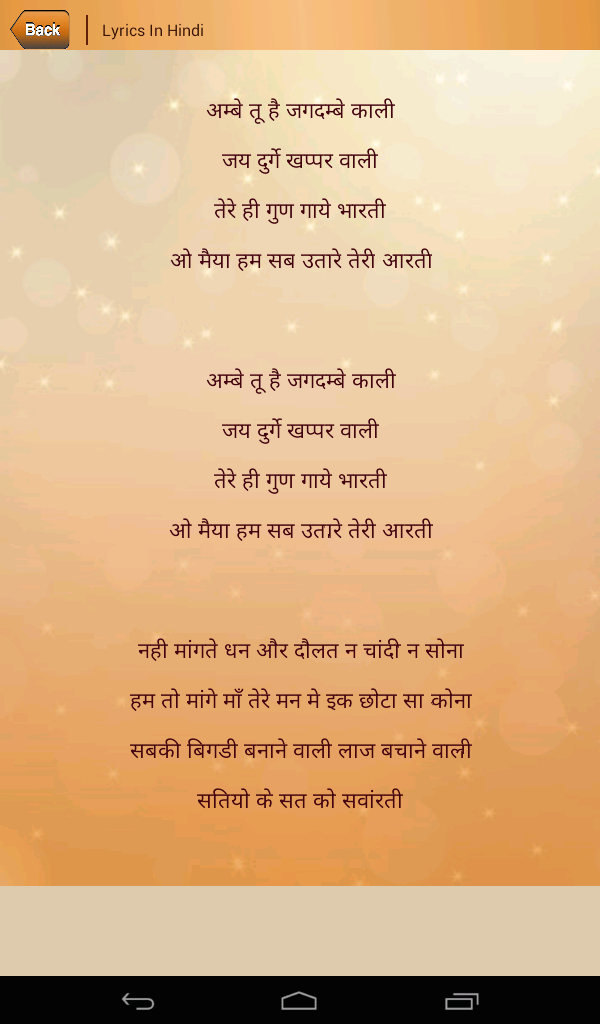 Back
Lyrics In Hindi
अम्बे तू है जगदम्बे काली
जय दुर्गे खप्पर वाली
तेरे ही गुण गाये भारती
ओ मैया हम सब उतारे तेरी आरती
अम्बे तू है जगदम्बे काली
जय दुर्गे खप्पर वाली
तेरे ही गुण गाये भारती
ओ मैया हम सब उतारे तेरी आरती
नही मांगते धन और दौलत न चांदी न सोना
हम तो मांगे माँ तेरे मन मे इक छोटा सा कोना
सबकी बिगडी बनाने वाली लाज बचाने वाली
सतियो के सत को सवांरती